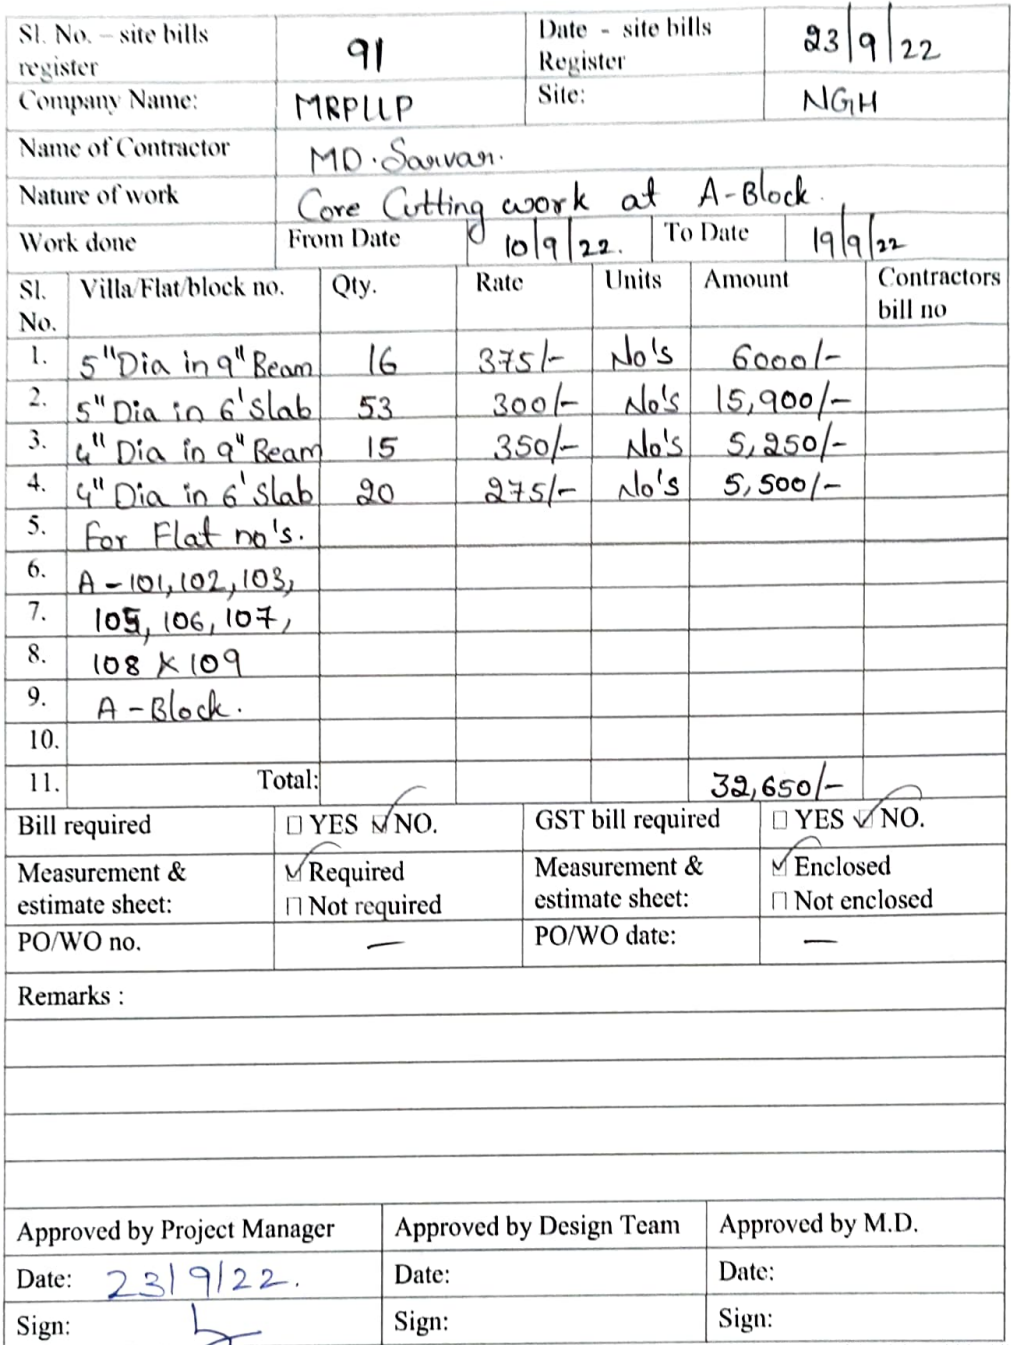 Sl. No. – site bills register 91 Date - site bills Register 23/9/22
Company Name: MRPLLP Site: NGH
Name of Contractor MD. Sarvar.
Nature of work Core Cutting work at A-Block.
Work done From Date 10/9/22. To Date 19/9/22
Sl. No. Villa/Flat/block no. Qty. Rate Units Amount Contractors bill no
1. 5"Dia in 9" Beam 16 375/- No's 6000/-
2. 5" Dia in 6' Slab 53 300/- No's 15,900/-
3. 4" Dia in 9" Beam 15 350/- No's 5,250/-
4. 4" Dia in 6' Slab 20 275/- No's 5,500/-
5. For Flat no's.
6. A-101, 102, 103,
7. 105, 106, 107,
8. 108 & 109
9. A-Block.
10.
11. Total: 32,650/-
Bill required ☐ YES ☑ NO. GST bill required ☐ YES ☑ NO.
Measurement & estimate sheet: ☑ Required ☐ Not required Measurement & estimate sheet: ☑ Enclosed ☐ Not enclosed
PO/WO no. — PO/WO date: —
Remarks :
Approved by Project Manager Approved by Design Team Approved by M.D.
Date: 23/9/22. Date: Date:
Sign: Sign: Sign: